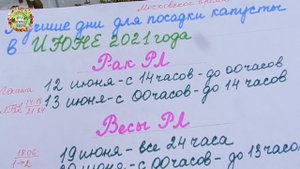 Московское время
Лучшие дни для посадки капусты
в ИЮНЕ 2021 года
Рак РЛ
12 июня - с 14 часов - до 00 часов
13 июня - с 00 часов - до 14 часов
Весы РЛ
19 июня - все 24 часа
20 июня - с 00 часов - до 13 часов
18.06